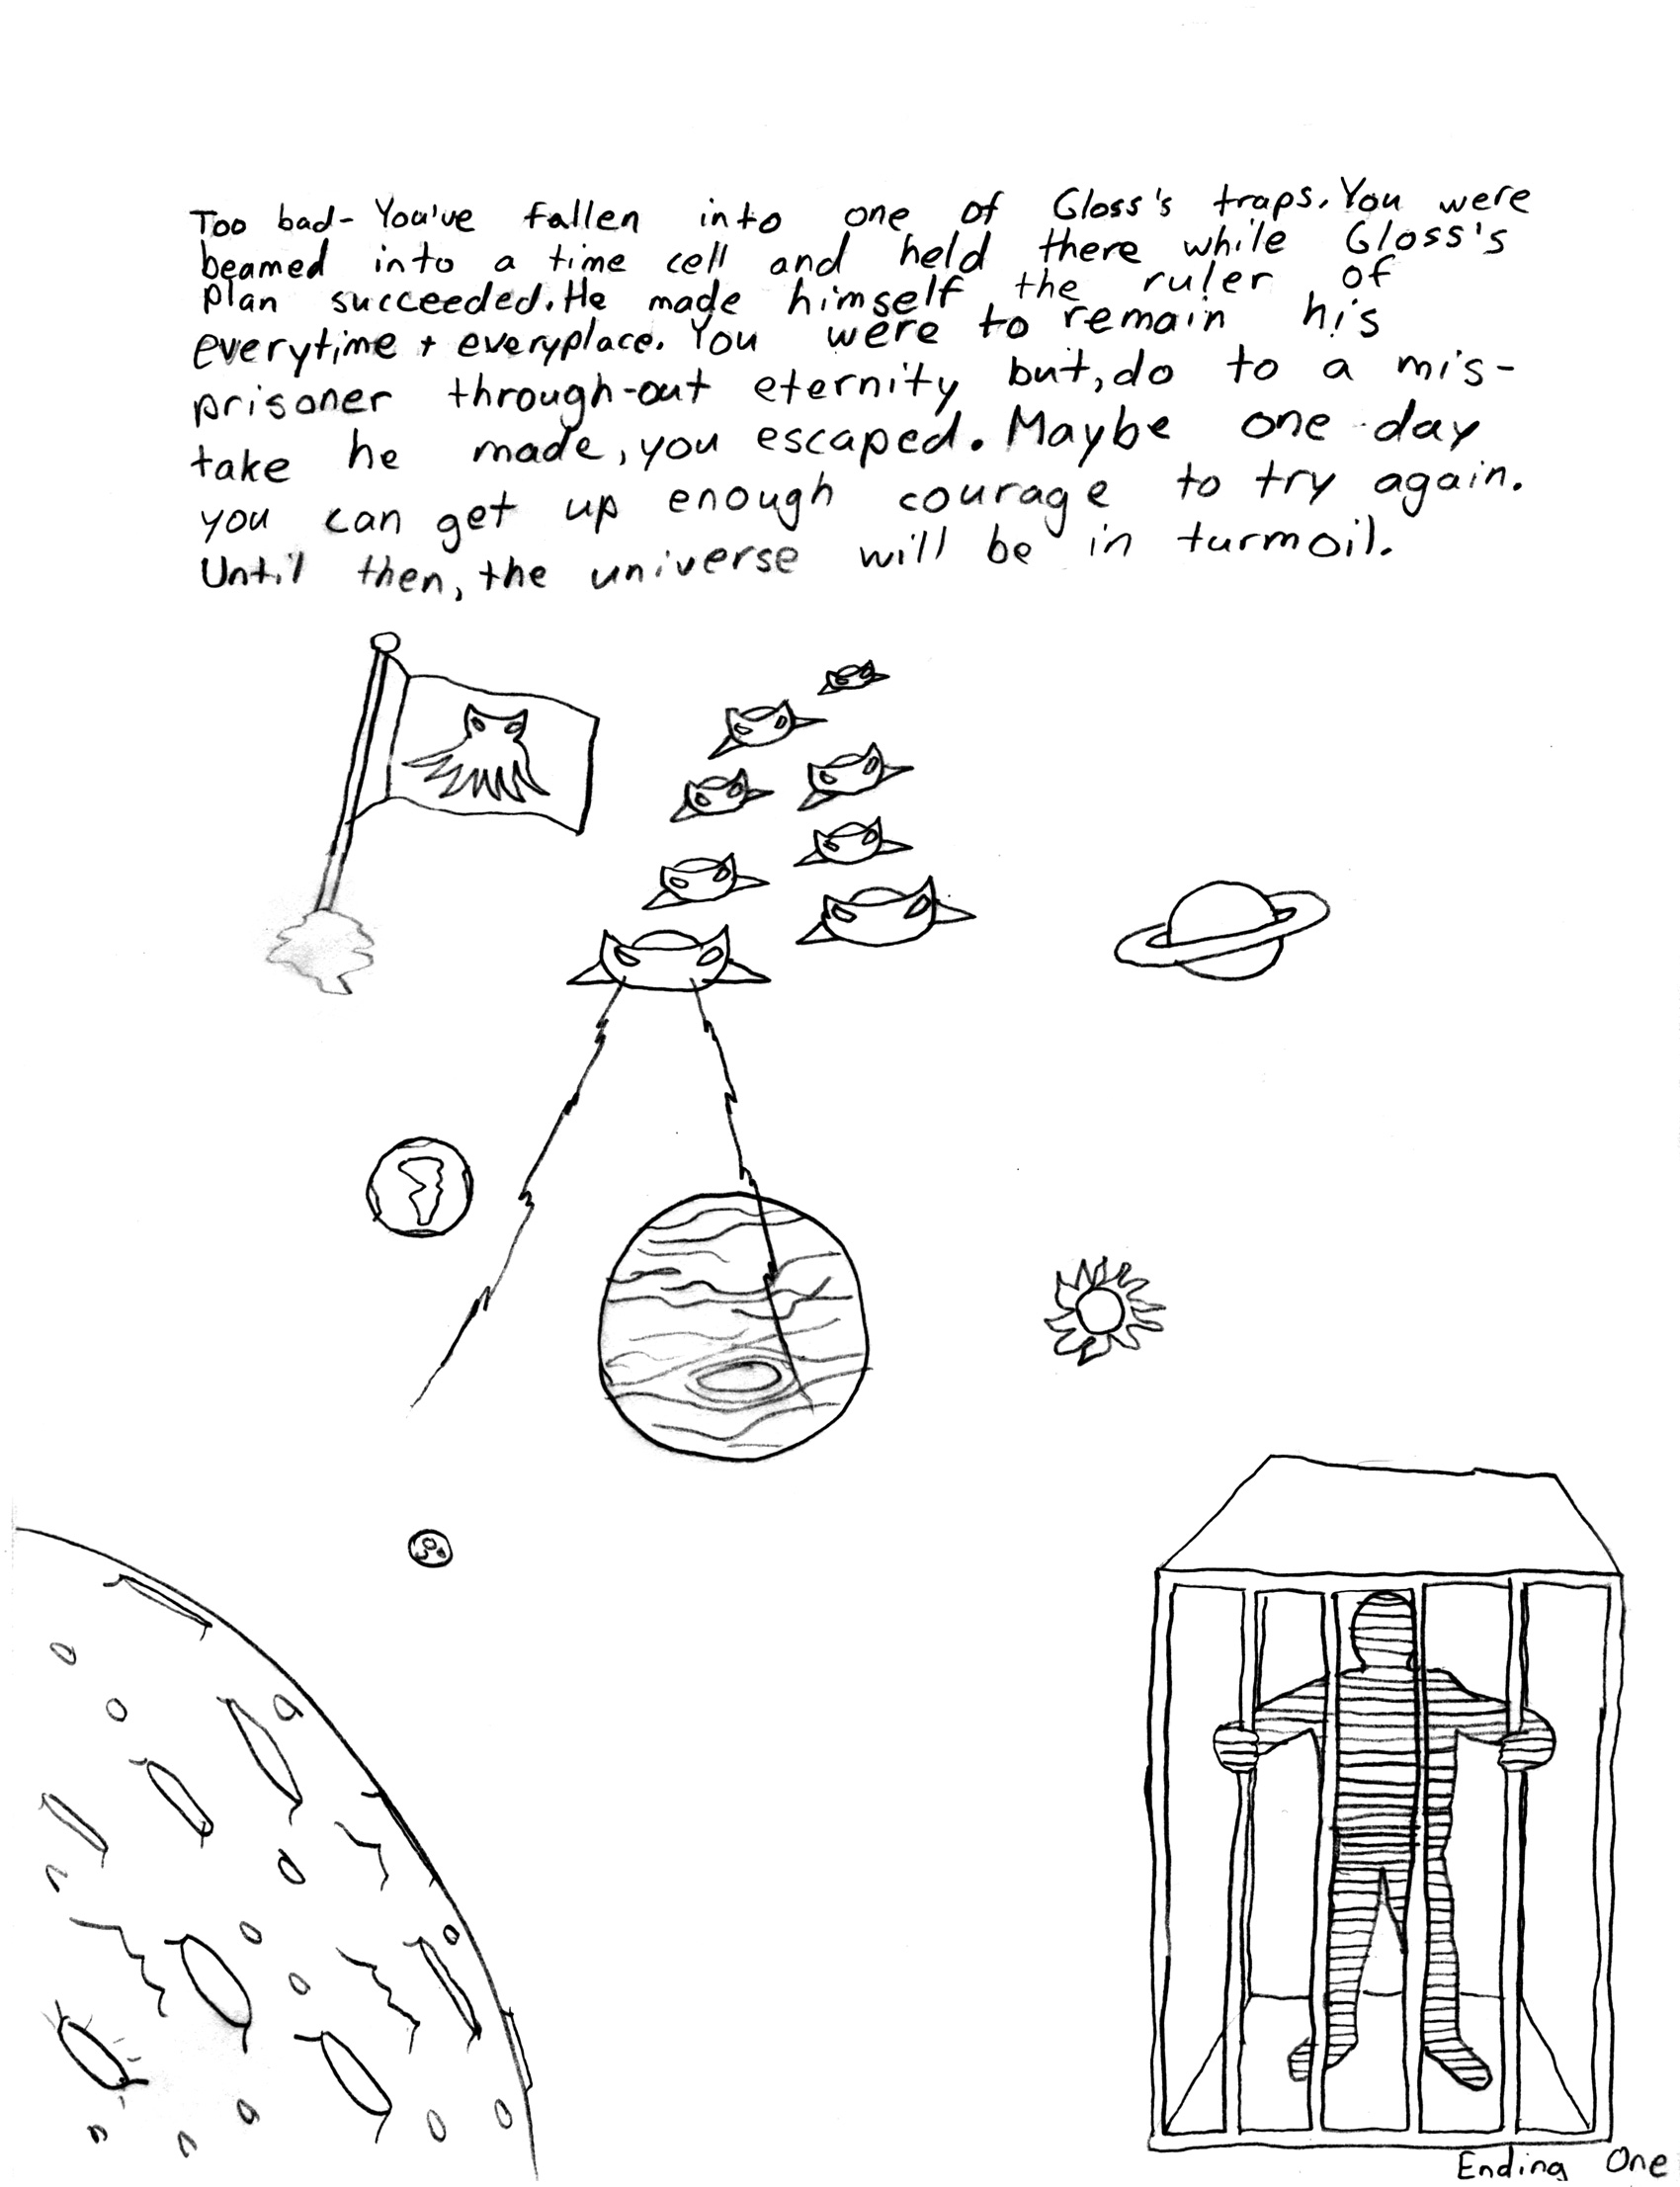 Too bad- You've fallen into one of Gloss's traps. You were
beamed into a time cell and held there while Gloss's
plan succeeded. He made himself the ruler of
everytime + everyplace. You were to remain his
prisoner through-out eternity but, do to a mis-
take he made, you escaped. Maybe one day
you can get up enough courage to try again.
Until then, the universe will be in turmoil.
Ending One